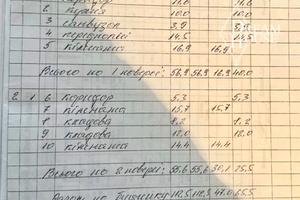 2 Кухня 10.0 10.0
3 Санвузол 3,9 3,9
4 передпокій 14,5 14,5
5 Кімната 16,9 16,9
Всього по 1 поверсі: 56,9 56,9 16,9 40.0
2 1 6 Коридор 5,3 5,3
7 Кімната 15,7 15,7
8 кладова 8,2 8,2
9 кладова 12,0 12,0
10 Кімната 14,4 14,4
Всього по 2 поверсі: 55,6 55,6 30,1 25,5
по будинку 112,5 112,5 47,0 65,5